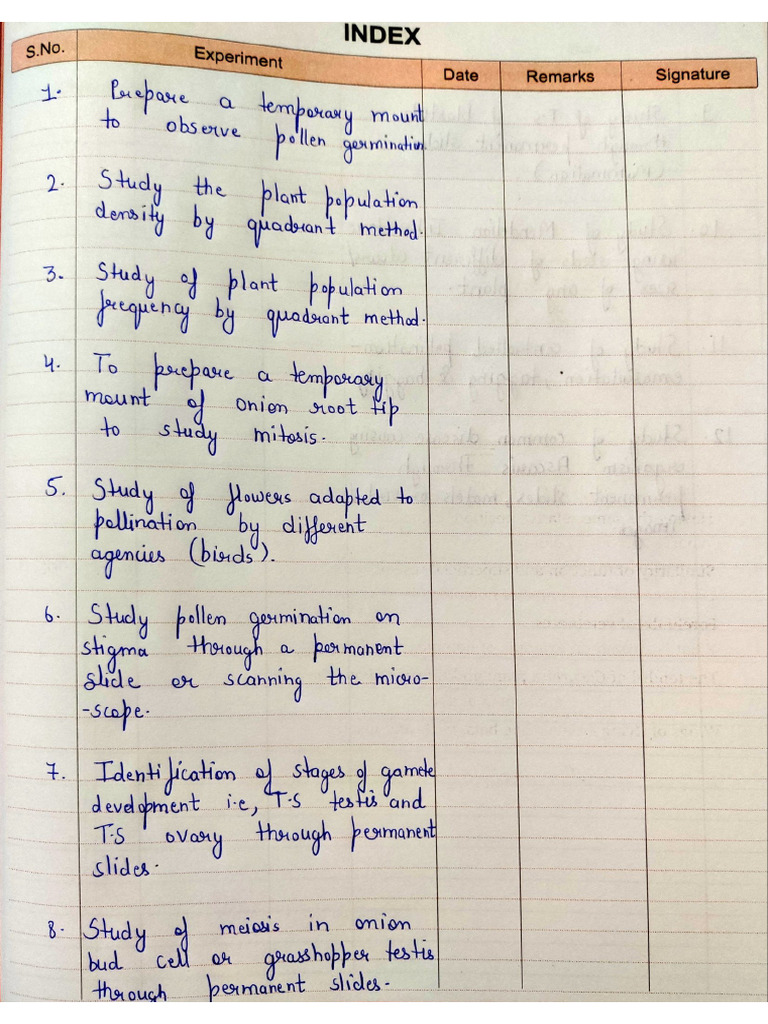 INDEX
S.No. Experiment Date Remarks Signature
1. Prepare a temporary mount
to observe pollen germination.
2. Study the plant population
density by quadrant method.
3. Study of plant population
frequency by quadrant method.
4. To prepare a temporary
mount of onion root tip
to study mitosis.
5. Study of flowers adapted to
pollination by different
agencies (birds).
6. Study pollen germination on
stigma through a permanent
slide or scanning the micro-
-scope.
7. Identification of stages of gamete
development i.e, T.S testis and
T.S ovary through permanent
slides.
8. Study of meiosis in onion
bud cell or grasshopper testis
through permanent slides.